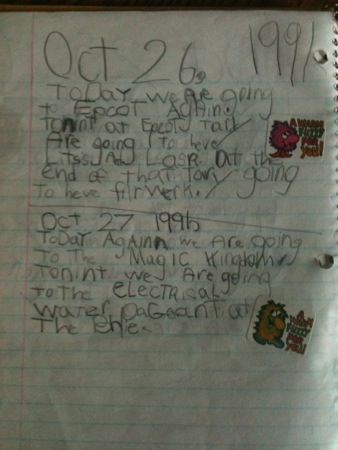 Oct 26, 1991
ToDay we Are going
to Epcot AgAin.
Tonint at Epcot They
Are going to heve
At the
end of that they going
To heve firwerk.
Oct 27 1996
ToDay AgAinn we Are going
To The MagIc Kingdom
Tonint we Are going
To the electrical
water pageant at
The
A WARM
FUZZY
FOR
YOU!
A WARM
FUZZY
FOR
YOU!